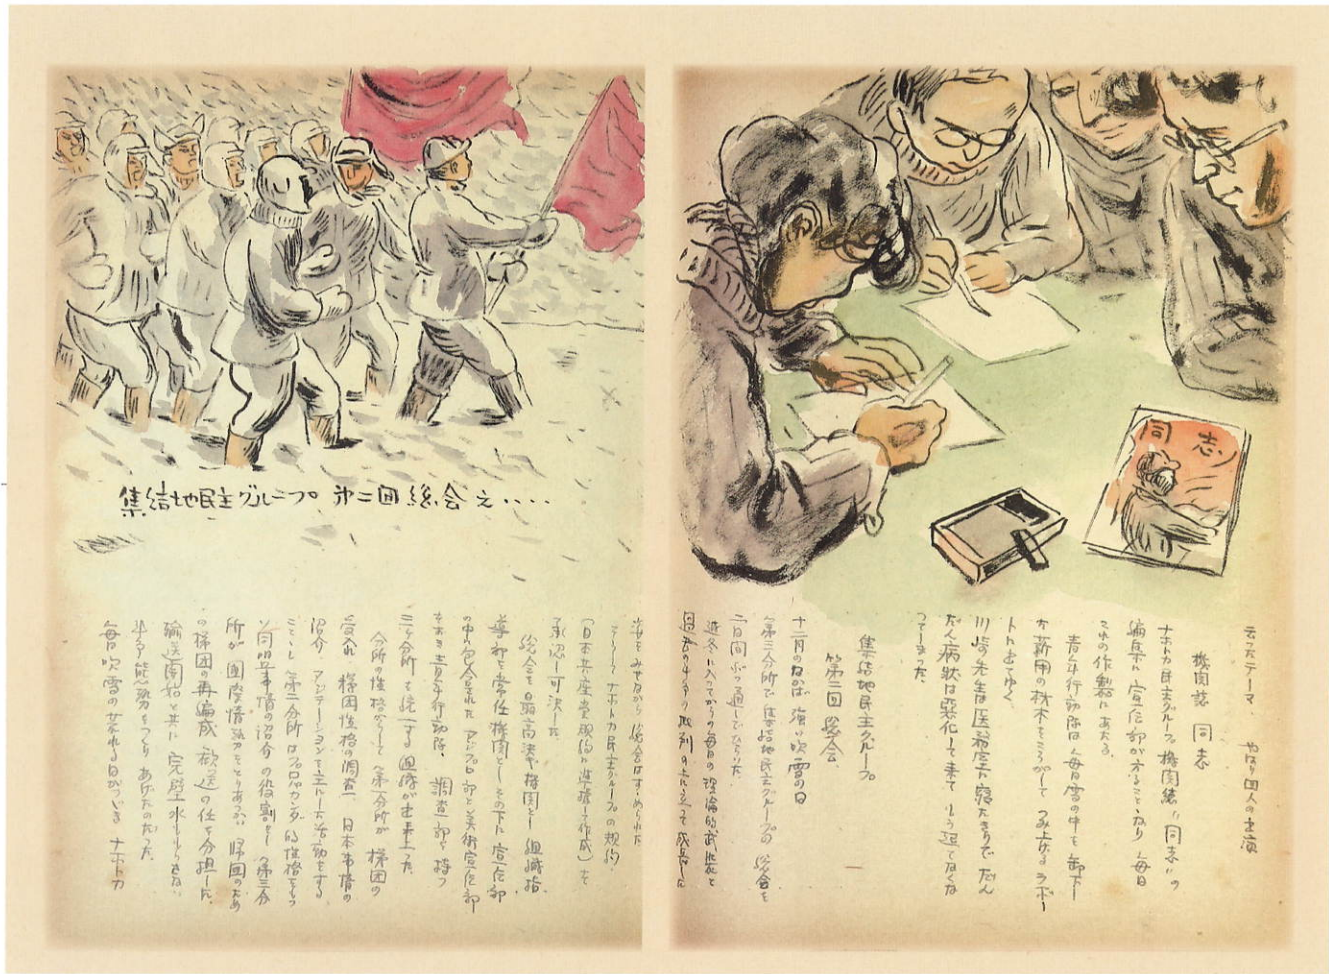 同志
云ったテーマ、やはり四人の主演
機関誌 同志
ナホトカ民主グループ機関紙"同志"の
編集に宣伝部が することになり 毎日
これの作製にあたる。
青年行動隊は毎日雪の中を卸下し
た薪用の材木をころがしてつみ上げるラボー
トに出てゆく。
川崎先生は医務室で寝たきりで だん
だん病状は悪化して来て もう起てなくな
ってしまった。
集結地民主グループ
第二回総会
十二月のなかば 強い吹雪の日
第三分所で集結地民主グループの総会を
二日間ぶっ通しでひらいた
冬に入ってからの毎日の理論的武装と
過去の の批判の上に立って成長した
集結地民主グループ 第二回総会え・・・・
姿をみせながら総会はすゝめられた
ナホトカ民主グループの規約
(日本共産党規約に準據して作成)を
承認し可決した
総会を最高決議機関とし 組織指
導部を常任機関としその下に宣伝部
の中に包含された アジプロ部と美術宣伝部
をおき青年行動隊、調査部を持つ
三ヶ分所を統一する組織が出来上った
分所の性格からして第一分所が梯団の
受入れ、梯団性格の調査、日本事情の
紹介 アジテーションを主とした活動をする
こととし 第二分所はプロパカンダ的性格をもつ
ソ同盟事情の紹介の役割をし 第三分
所が国際情勢をとりあつかい 帰国のため
の梯団の再編成 歓送の任を分担した
輸送開始と共に 完璧水ももらさない
斗争態勢をつくりあげたのだった
毎日吹雪の荒れる日がつづき ナホトカ